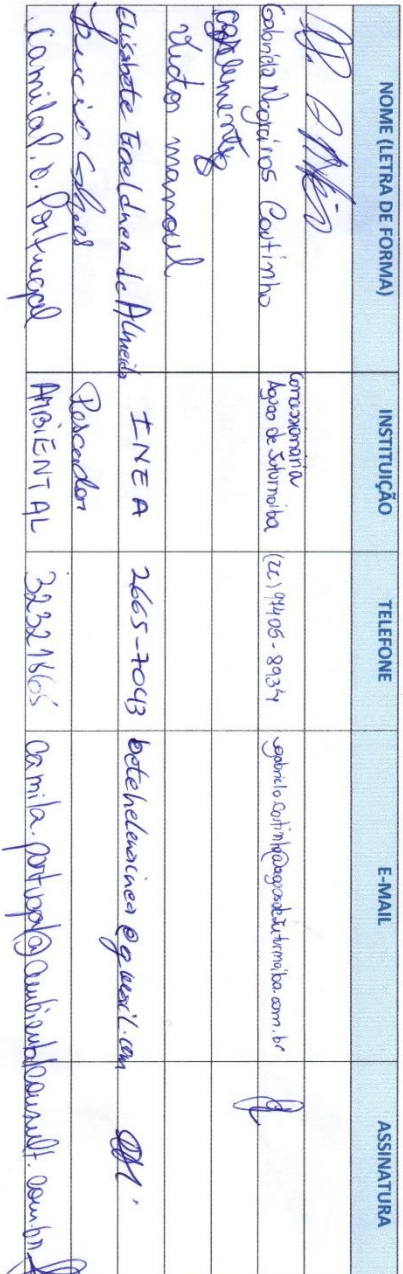 NOME (LETRA DE FORMA) INSTITUIÇÃO TELEFONE E-MAIL ASSINATURA
Gabriela Negreiros Coutinho Concessionária Águas de Juturnaíba (22) 97406-8934 gabriela.coutinho@aguasdejuturnaiba.com.br
Victor manoel
Elisabete Groeldner de Almeida INEA 2665-7043 betehelenainea@gmail.com
Pescador
Camila P. D. Portugal AMBIENTAL 32321665 camila.portugal@ambientalconsult.com.br